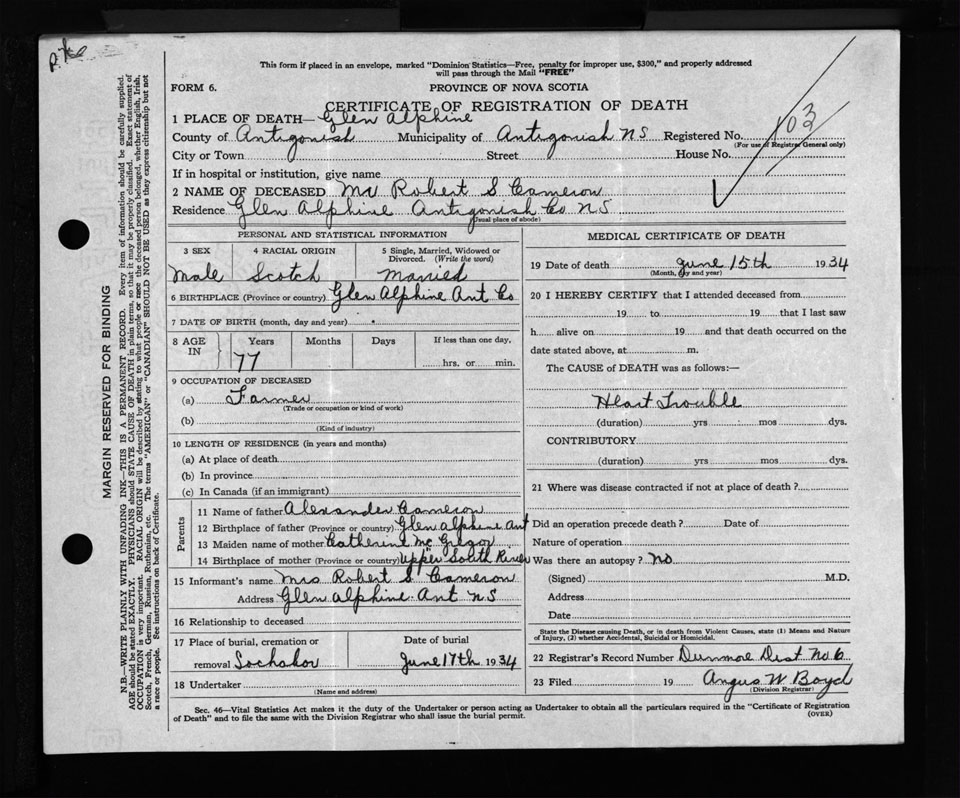 This form if placed in an envelope, marked "Dominion Statistics—Free, penalty for improper use, $300," and properly addressed
will pass through the Mail "FREE"
FORM 6.
PROVINCE OF NOVA SCOTIA
CERTIFICATE OF REGISTRATION OF DEATH
103
1 PLACE OF DEATH— Glen Alphine
County of Antigonish Municipality of Antigonish NS Registered No.
(For use of Registrar General only)
City or Town Street House No.
If in hospital or institution, give name
2 NAME OF DECEASED Mr Robert S Cameron
Residence Glen Alphine Antigonish Co NS
(Usual place of abode)
PERSONAL AND STATISTICAL INFORMATION
3 SEX 4 RACIAL ORIGIN 5 Single, Married, Widowed or
Divorced. (Write the word)
Male Scotch Married
6 BIRTHPLACE (Province or country) Glen Alphine Ant Co
7 DATE OF BIRTH (month, day and year)
8 AGE IN Years Months Days If less than one day,
77 hrs. or min.
9 OCCUPATION OF DECEASED
(a) Farmer
(Trade or occupation or kind of work)
(b)
(Kind of industry)
10 LENGTH OF RESIDENCE (in years and months)
(a) At place of death
(b) In province
(c) In Canada (if an immigrant)
Parents
11 Name of father Alexander Cameron
12 Birthplace of father (Province or country) Glen alphine Ant
13 Maiden name of mother Catherine Mc Gregor
14 Birthplace of mother (Province or country) Upper South River
15 Informant's name Mrs Robert S Cameron
Address Glen alphine Ant NS
16 Relationship to deceased
17 Place of burial, cremation or Date of burial
removal Lochabor June 17th 1934
18 Undertaker
(Name and address)
MEDICAL CERTIFICATE OF DEATH
19 Date of death June 15th 1934
(Month, day and year)
20 I HEREBY CERTIFY that I attended deceased from
19 to 19 that I last saw
h alive on 19 and that death occurred on the
date stated above, at m.
The CAUSE of DEATH was as follows:—
Heart Trouble
(duration) yrs mos dys.
CONTRIBUTORY
(duration) yrs mos dys.
21 Where was disease contracted if not at place of death?
Did an operation precede death? Date of
Nature of operation
Was there an autopsy? No
(Signed) M.D.
Address
Date
State the Disease causing Death, or in death from Violent Causes, state (1) Means and Nature
of Injury, (2) whether Accidental, Suicidal or Homicidal.
22 Registrar's Record Number Dunmore Dist No 6
23 Filed 19 Angus W Boyd
(Division Registrar)
Sec. 46—Vital Statistics Act makes it the duty of the Undertaker or person acting as Undertaker to obtain all the particulars required in the "Certificate of Registration
of Death" and to file the same with the Division Registrar who shall issue the burial permit.
(OVER)
MARGIN RESERVED FOR BINDING
N.B.—WRITE PLAINLY WITH UNFADING INK—THIS IS A PERMANENT RECORD. Every item of information should be carefully supplied.
AGE should be stated EXACTLY. PHYSICIANS should STATE CAUSE OF DEATH in plain terms, so that it may be properly classified. Exact statement of
OCCUPATION is very important. RACIAL ORIGIN will be described by stating to what people or race the deceased person belonged, whether English, Irish,
Scotch, French, German, Russian, Ruthenian, etc. The terms "AMERICAN" or "CANADIAN" SHOULD NOT BE USED as they express citizenship but not
a race or people. See instructions on back of Certificate.